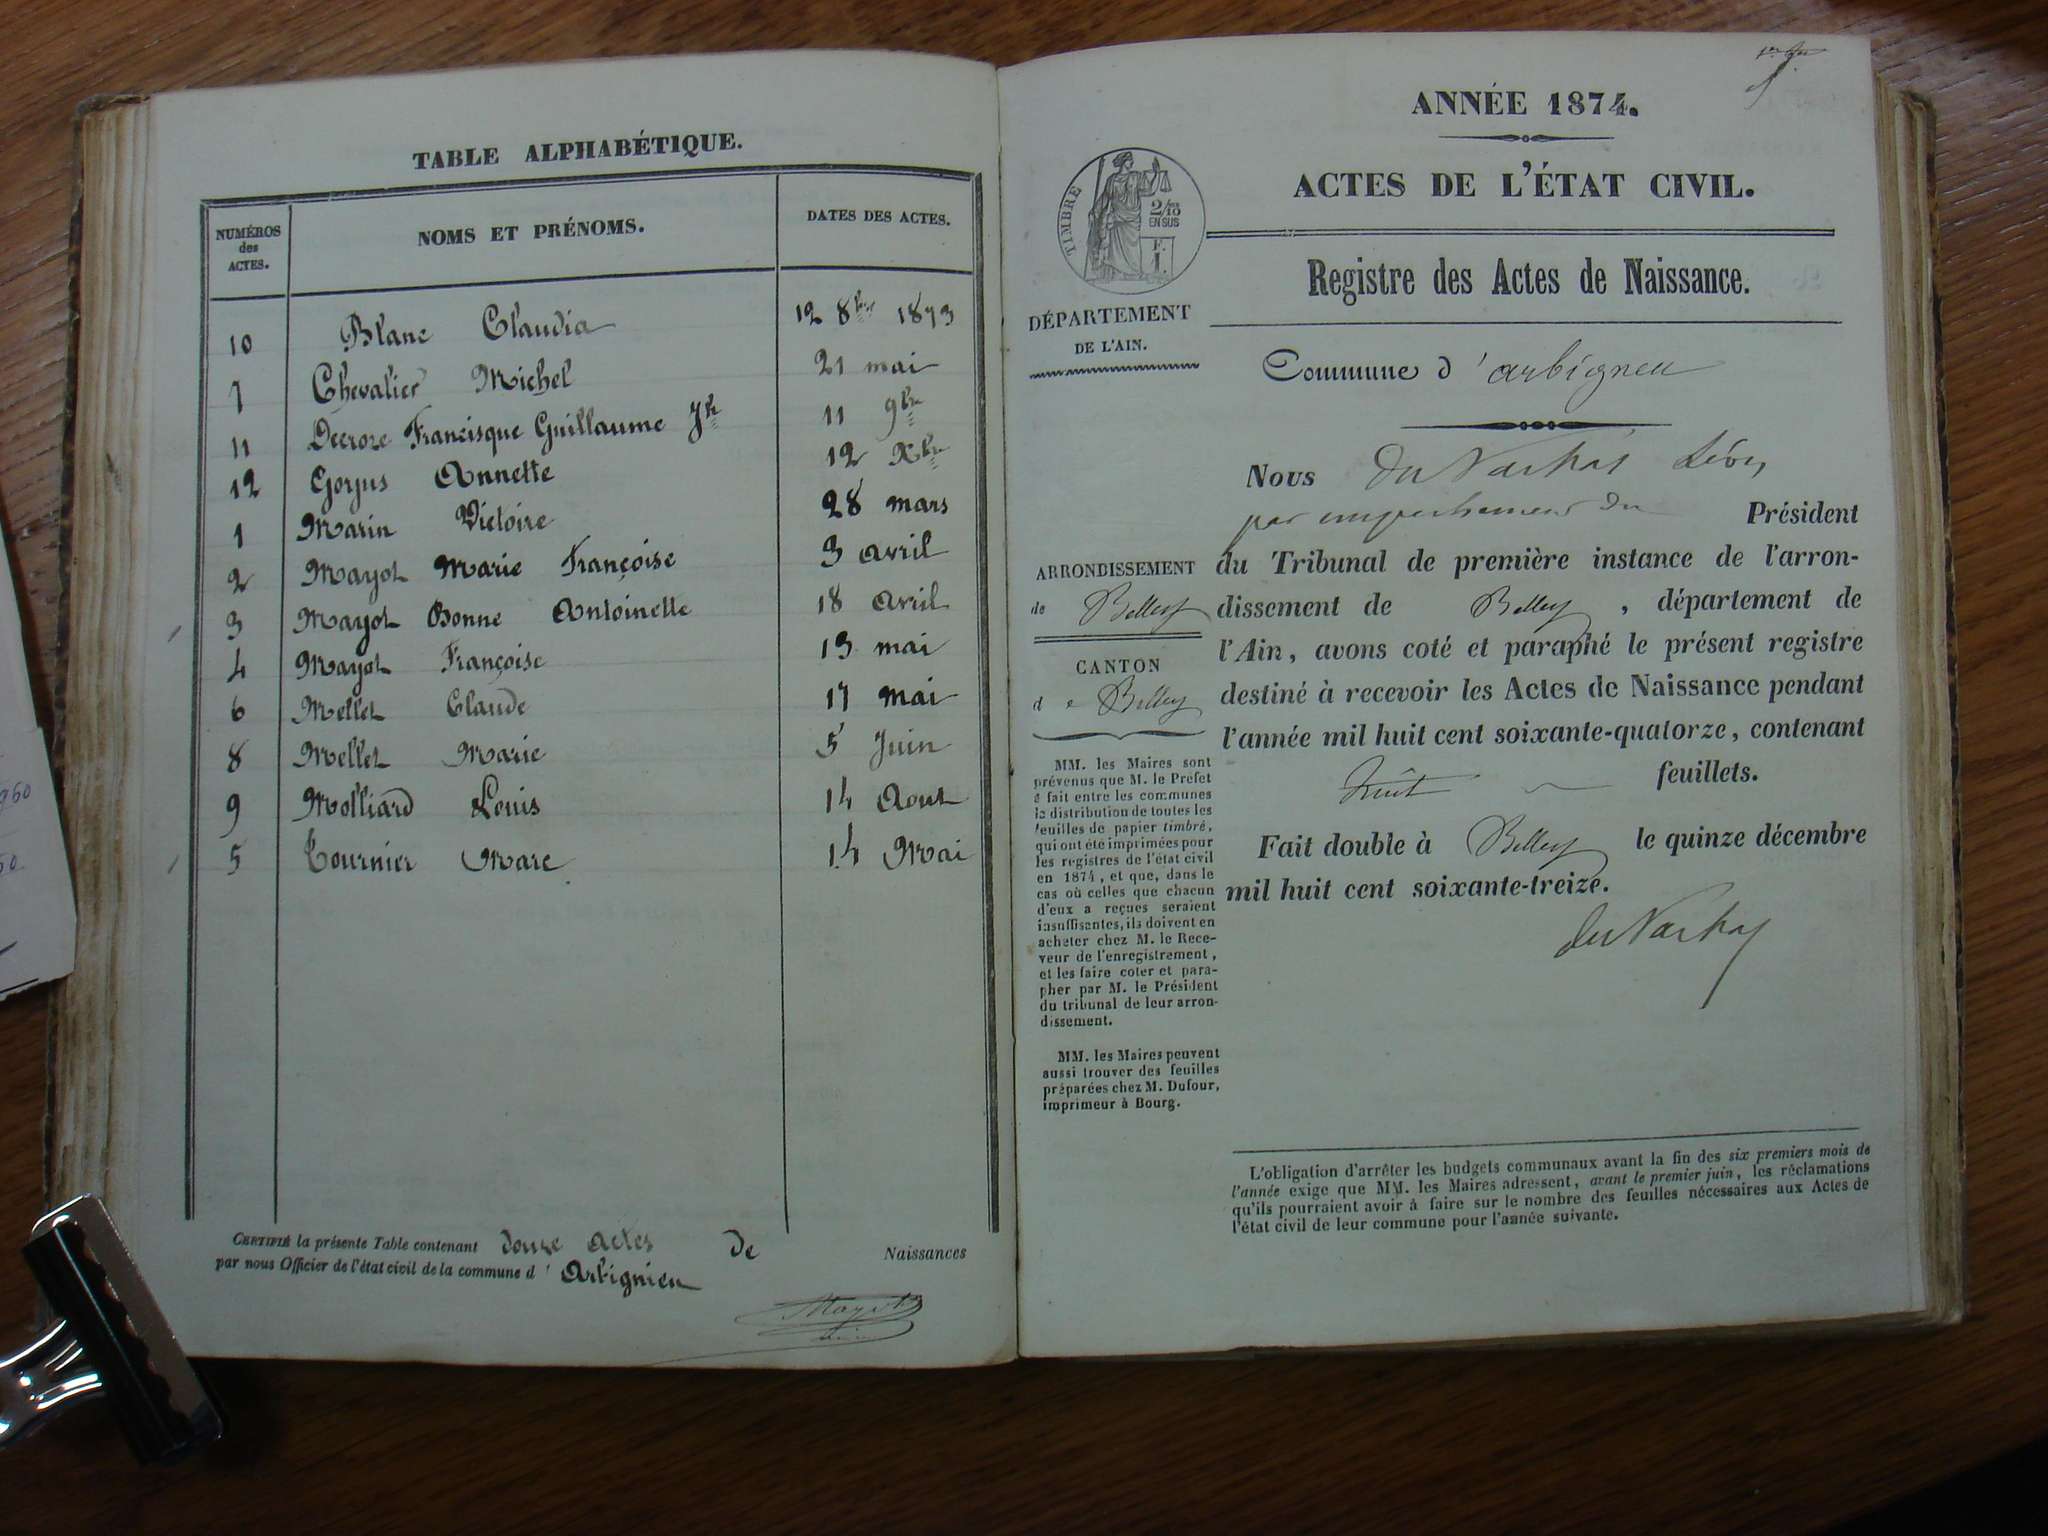 TABLE ALPHABÉTIQUE.
NUMÉROS des ACTES. NOMS ET PRÉNOMS. DATES DES ACTES.
10 Blanc Claudia 12 8bre 1873
7 Chevalier Michel 21 mai
11 Decroze Francisque Guillaume Jh 11 9bre
12 Gorjus Annette 12 Xbre
1 Marin Victoire 28 mars
2 Mayot Marie Françoise 3 avril
3 Mayot Bonne Antoinette 18 avril
4 Mayot Françoise 13 mai
6 Mellet Claude 17 mai
8 Mellet Marie 5 Juin
9 Molliard Louis 14 Aout
5 Tournier Marc 14 Mai
CERTIFIÉ la présente Table contenant douze actes de Naissances
par nous Officier de l'état civil de la commune d' Arbignieu
Mayot
ANNÉE 1874.
ACTES DE L'ÉTAT CIVIL.
TIMBRE
2/10 EN SUS
F.
1.
Registre des Actes de Naissance.
DÉPARTEMENT
DE L'AIN.
Commune d'arbigneu
Nous
par empechement du Président
du Tribunal de première instance de l'arron-
dissement de Belley, département de
l'Ain, avons coté et paraphé le présent registre
destiné à recevoir les Actes de Naissance pendant
l'année mil huit cent soixante-quatorze, contenant
huit feuillets.
Fait double à Belley le quinze décembre
mil huit cent soixante-treize.
ARRONDISSEMENT
de Belley
CANTON
de Belley
MM. les Maires sont
prévenus que M. le Préfet
a fait entre les communes
la distribution de toutes les
feuilles de papier timbré,
qui ont été imprimées pour
les registres de l'état civil
en 1874, et que, dans le
cas où celles que chacun
d'eux a reçues seraient
insuffisantes, ils doivent en
acheter chez M. le Rece-
veur de l'enregistrement,
et les faire coter et para-
pher par M. le Président
du tribunal de leur arron-
dissement.
MM. les Maires peuvent
aussi trouver des feuilles
préparées chez M. Dufour,
imprimeur à Bourg.
L'obligation d'arrêter les budgets communaux avant la fin des six premiers mois de
l'année exige que MM. les Maires adressent, avant le premier juin, les réclamations
qu'ils pourraient avoir à faire sur le nombre des feuilles nécessaires aux Actes de
l'état civil de leur commune pour l'année suivante.